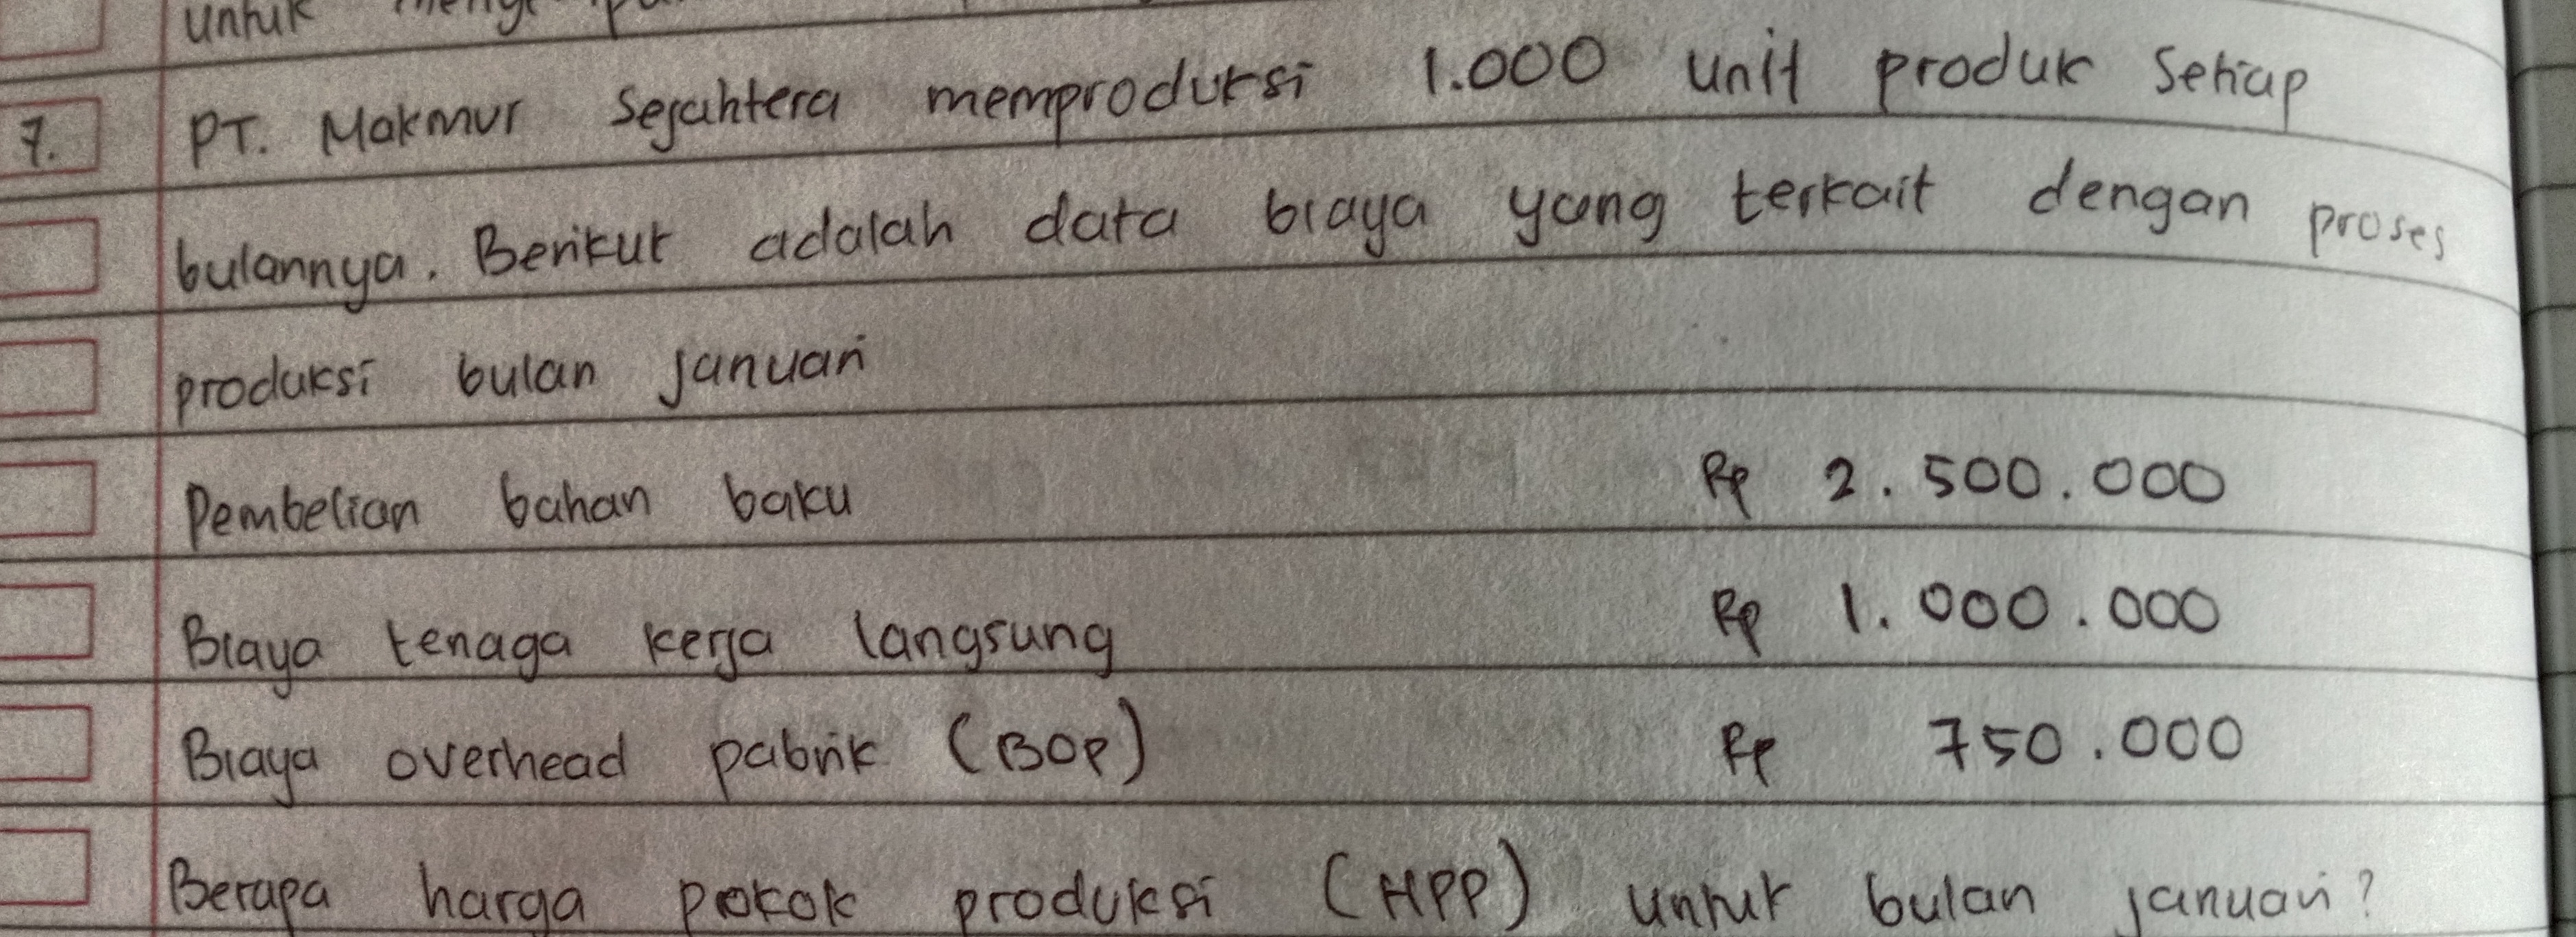 untuk
7. PT. Makmur Sejahtera memproduksi 1.000 unit produk Setiap
bulannya. Berikut adalah data biaya yang terkait dengan proses
produksi bulan Januari
Pembelian bahan baku Rp 2.500.000
Biaya tenaga kerja langsung Rp 1.000.000
Biaya overhead pabrik (BOP) Rp 750.000
Berapa harga pokok produksi (HPP) untuk bulan Januari?